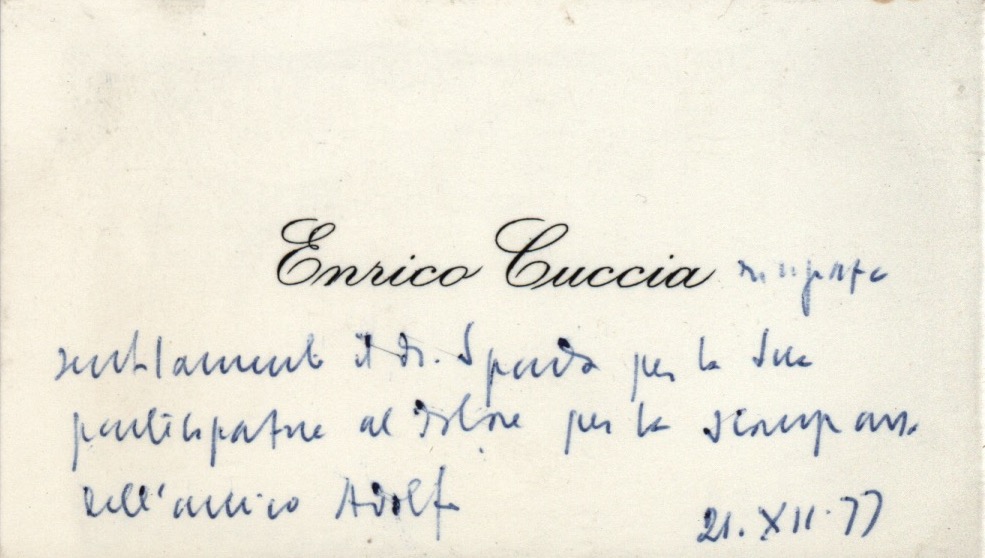 Enrico Cuccia ringrazia
sentitamente il dr. Spada per la Sua
partecipazione al dolore per la scomparsa
dell'amico Adolfo
21.XII.77